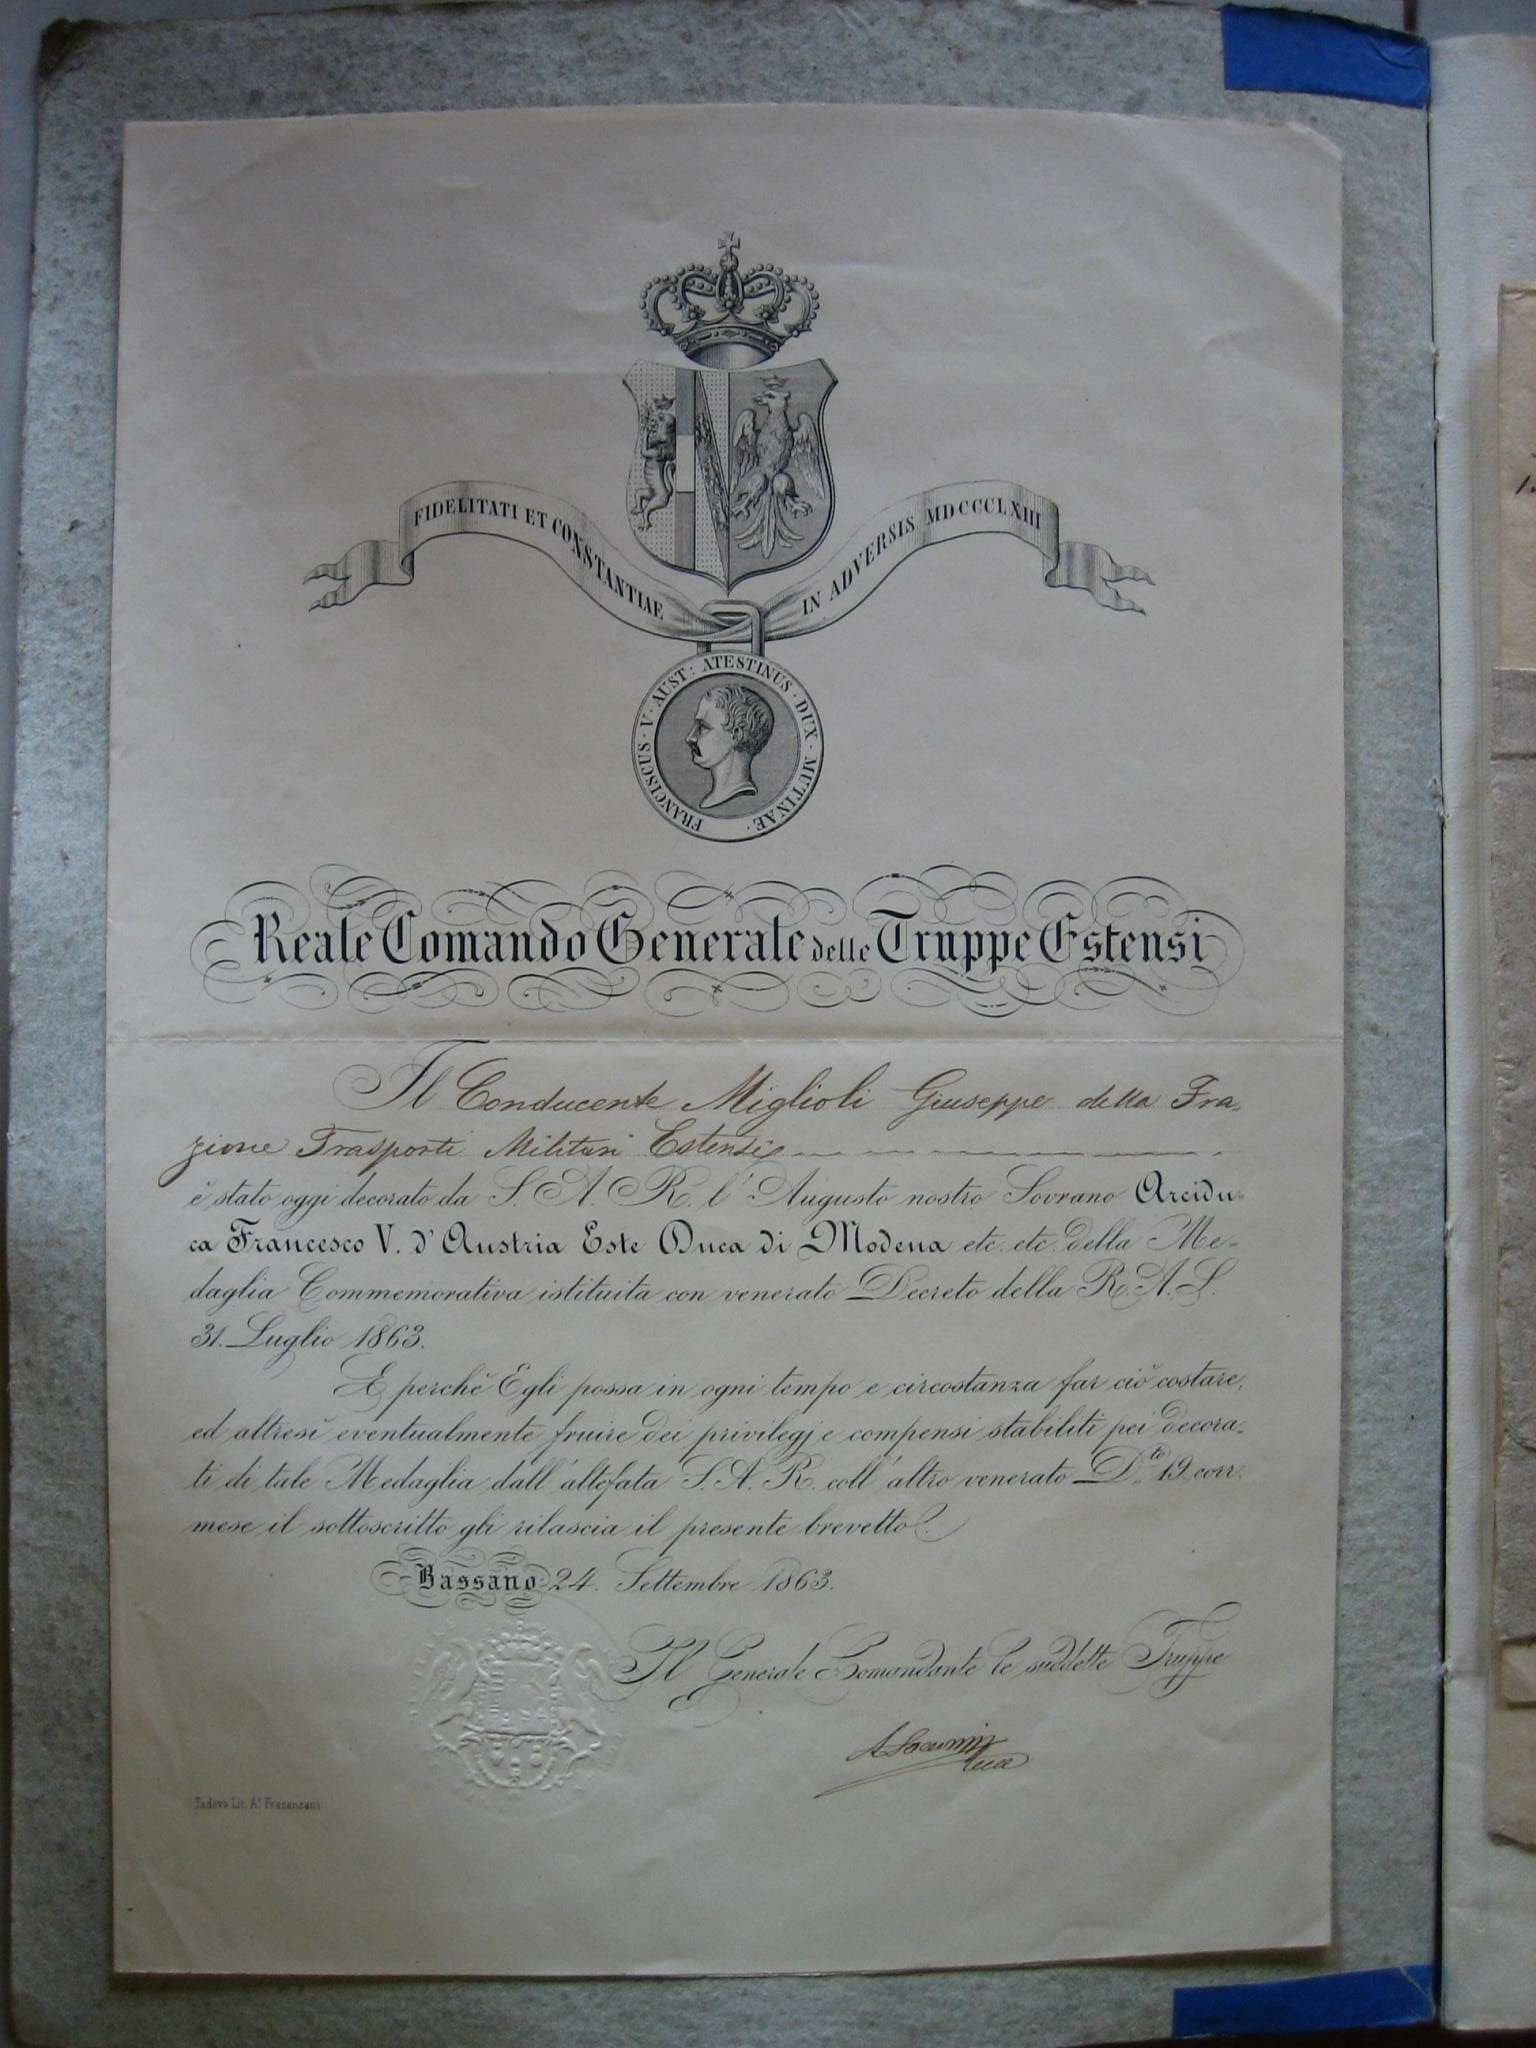 FIDELITATI ET CONSTANTIAE IN ADVERSIS MDCCCLXIII
FRANCISCUS · V · AUST : ATESTINUS · DUX · MUTINAE ·
Reale Comando Generale delle Truppe Estensi
Il Conducente Miglioli Giuseppe della Fra-
zione Trasporti Militari Estensi
è stato oggi decorato da S. A. R. l' Augusto nostro Sovrano Arcidu-
ca Francesco V. d' Austria Este Duca di Modena etc. etc. della Me-
daglia Commemorativa istituita con venerato Decreto della R. A. S.
31. Luglio 1863.
E perchè Egli possa in ogni tempo e circostanza far ciò costare,
ed altresì eventualmente fruire dei privilegj e compensi stabiliti pei decora-
ti di tale Medaglia dall' altefata S. A. R. coll' altro venerato D.to 19. corr.
mese il sottoscritto gli rilascia il presente brevetto.
Bassano 24. Settembre 1863.
Il Generale Comandante le suddette Truppe
Padova Lit. A.